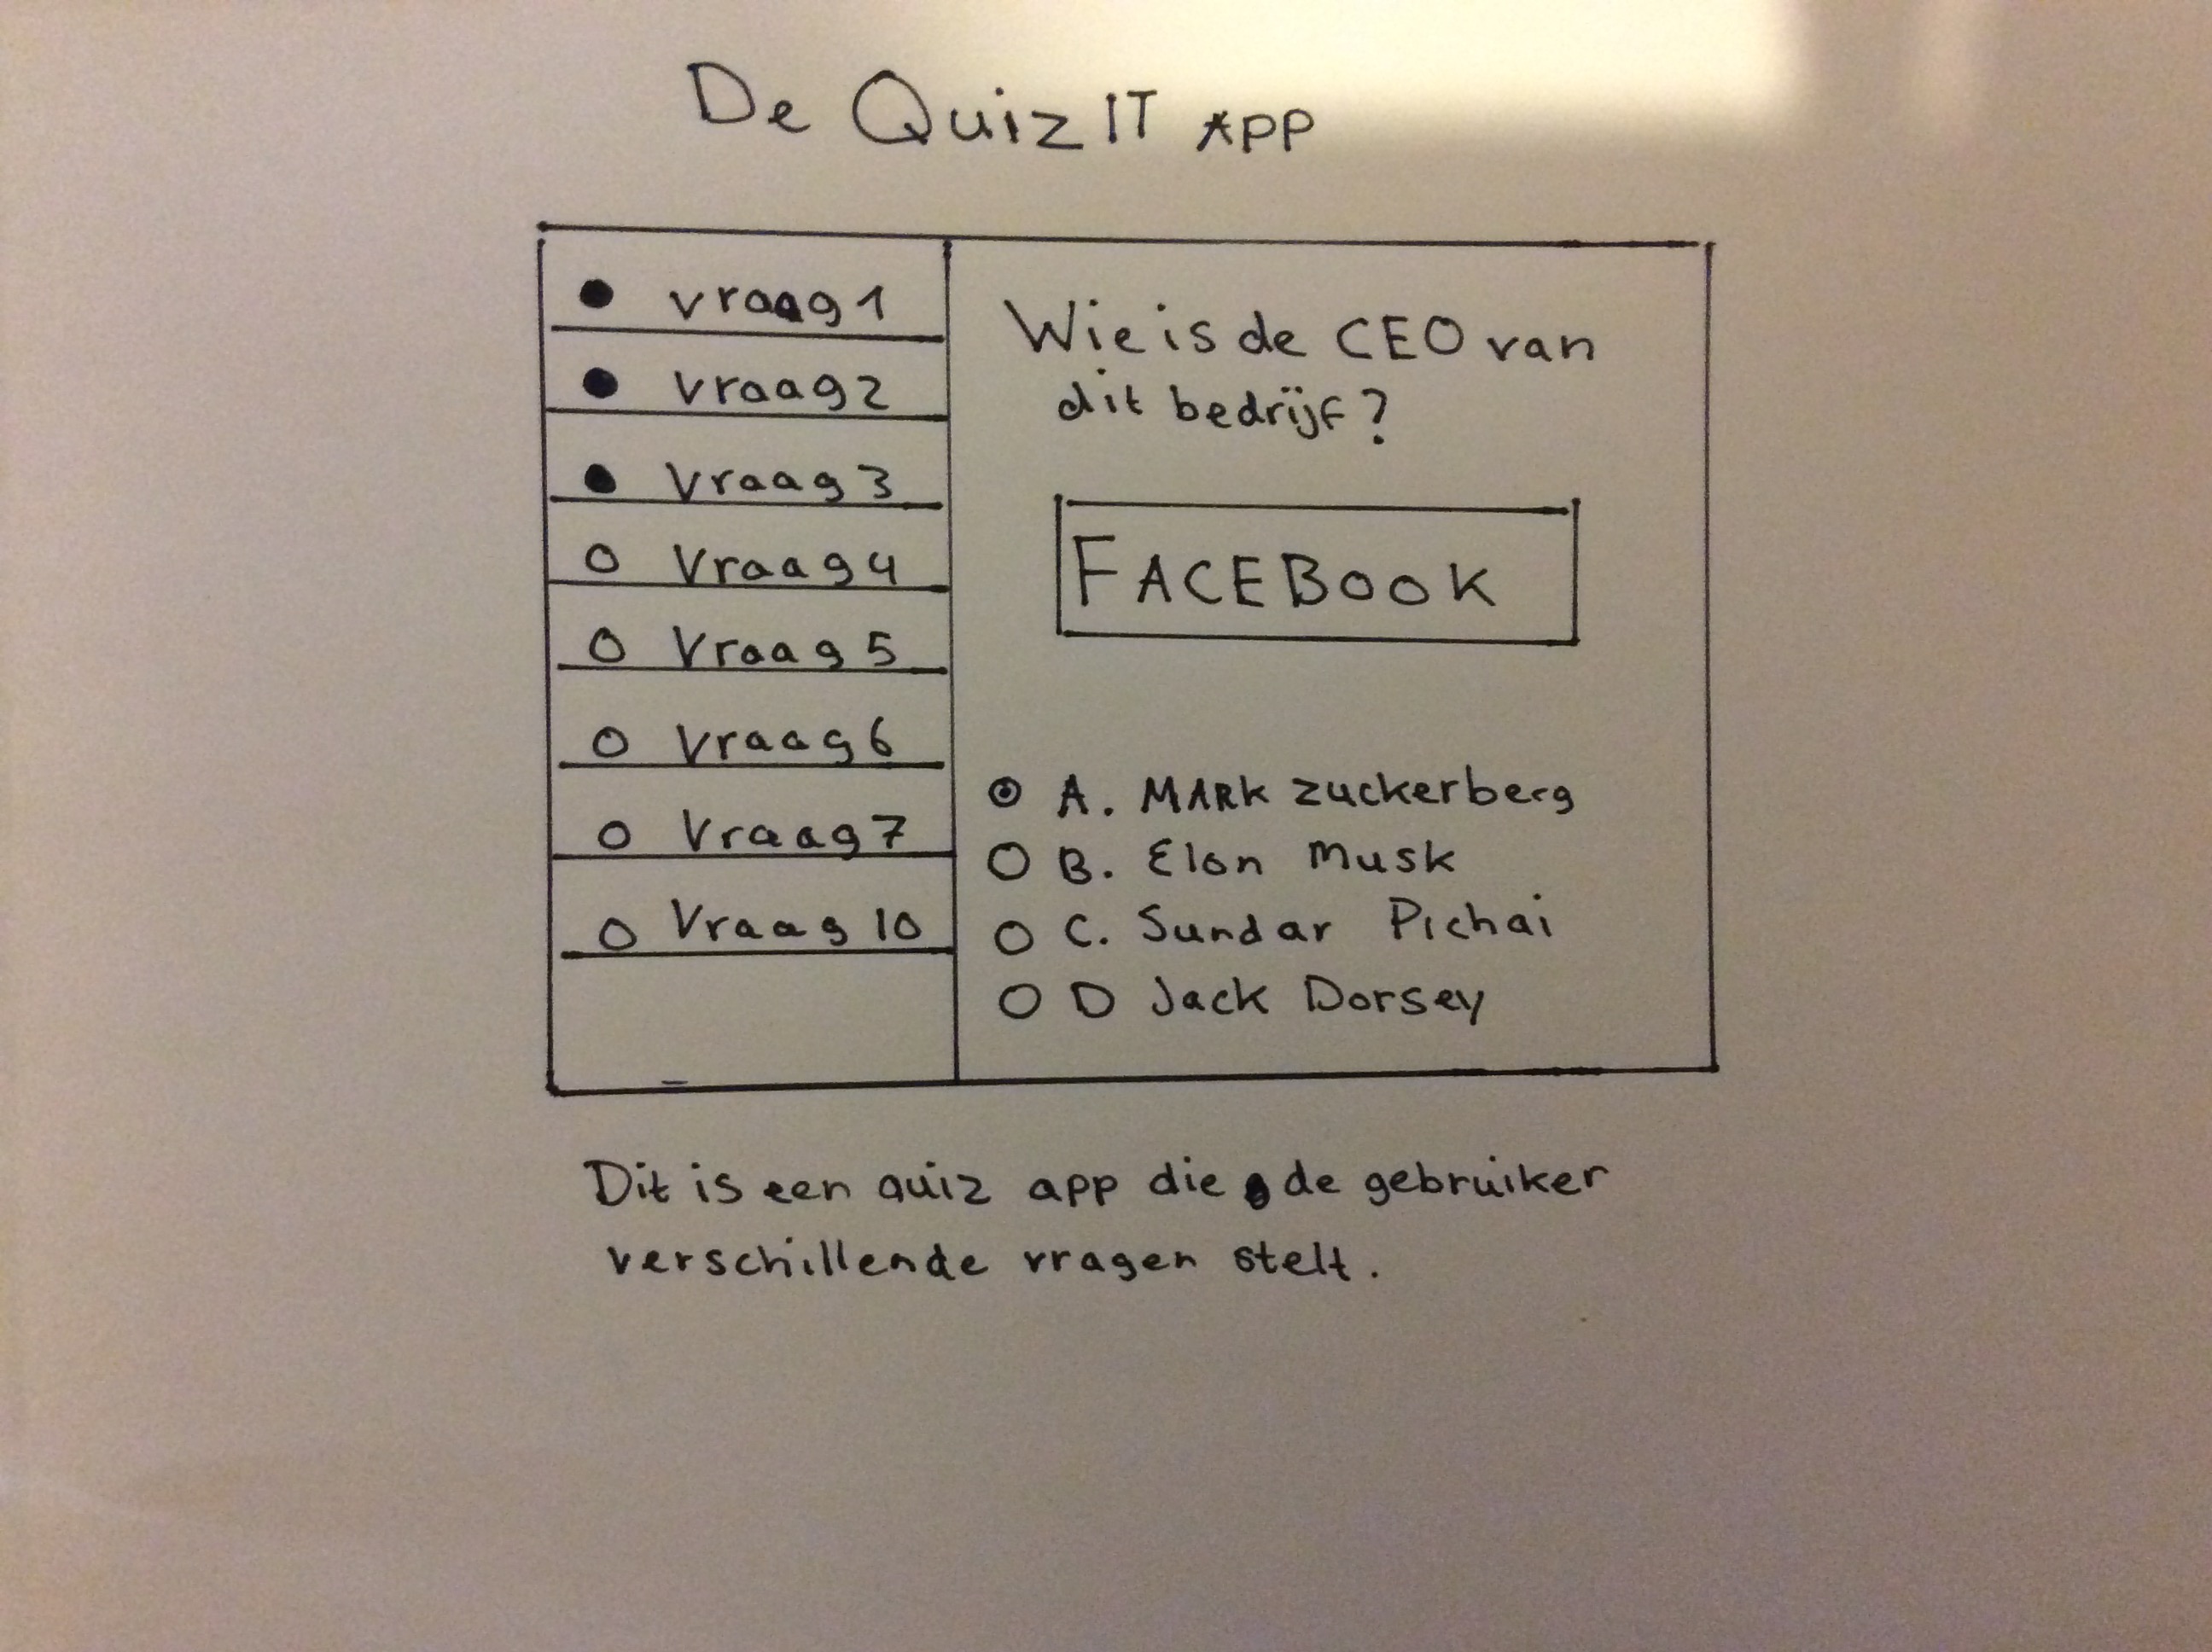 De QuizIT APP
vraag 1
vraag 2
Vraag 3
Vraag 4
Vraag 5
Vraag 6
Vraag 7
Vraag 10
Wie is de CEO van
dit bedrijf?
FACEBOOK
A. MARK zuckerberg
B. Elon Musk
C. Sundar Pichai
D Jack Dorsey
Dit is een quiz app die de gebruiker
verschillende vragen stelt.